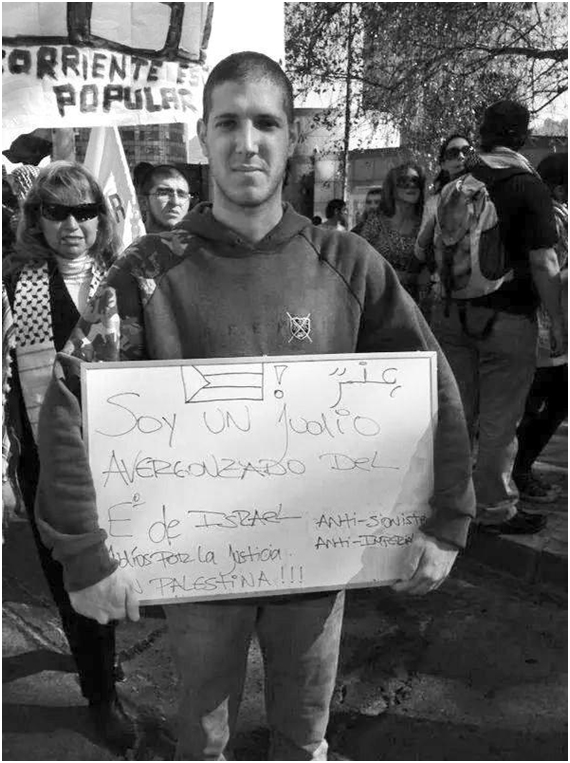 CORRIENTE ES
POPULAR
!
SOY UN judio
AVERGONZADO DEL
Eº de ISRAEL
ANti-Sionista
ANti-IMPERI
udios POR LA justicia
N PALEStiNA!!!